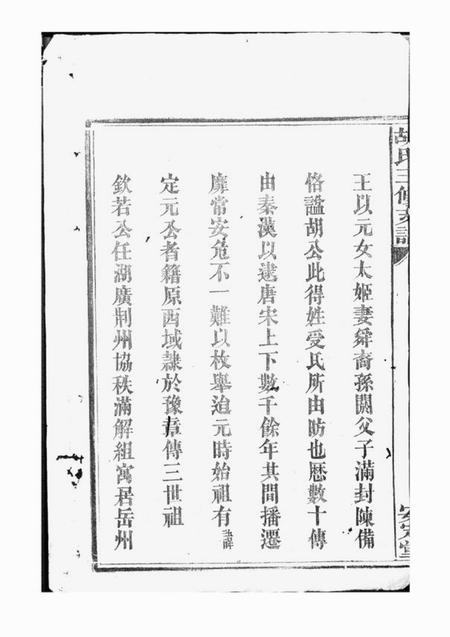 胡氏三修支譜
安定堂
王以元女太姬妻舜裔孫閼父子滿封陳備
恪諡胡公此得姓受氏所由昉也歷數十傳
由秦漢以逮唐宋上下數千餘年其間播遷
靡常安危不一難以枚舉迨元時始祖有諱
定元公者籍原西域隸於豫章傳三世祖
欽若公任湖廣荆州協秩滿解組寓居岳州